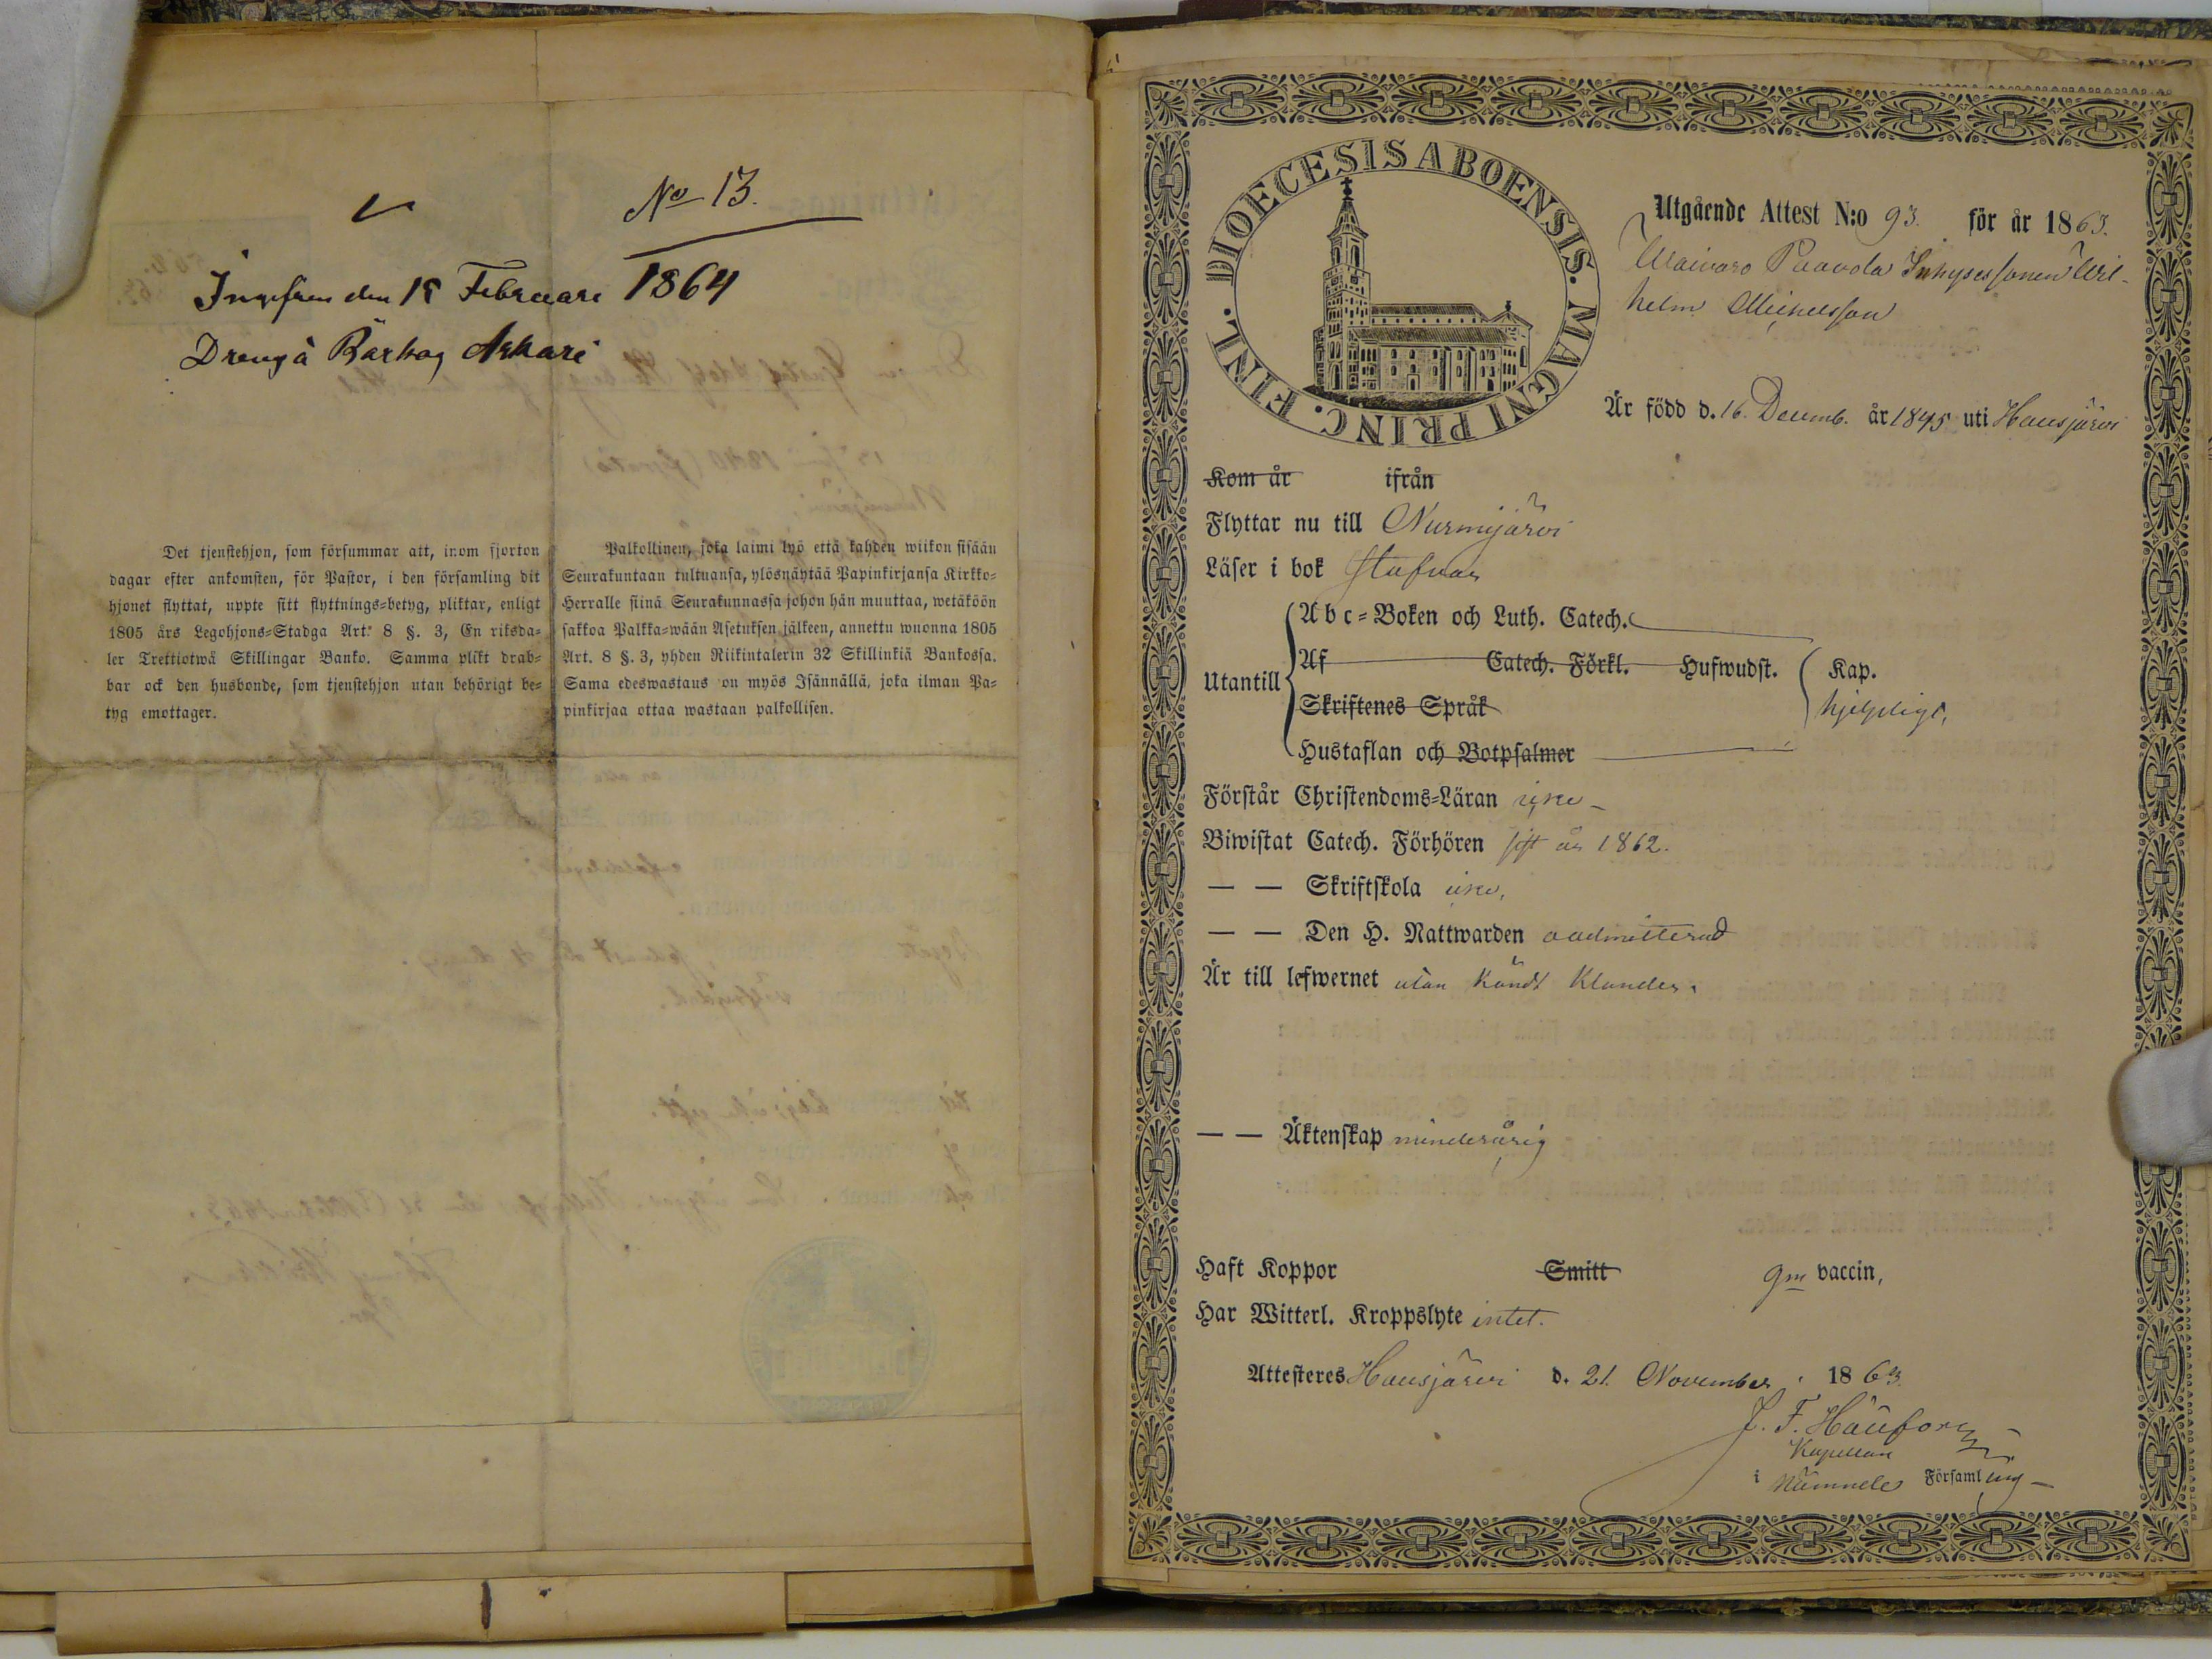 No 13.
den 18 Februari 1864
Dreng å Askari
Det tjenstehjon, som försummar att, inom fjorton
dagar efter ankomsten, för Pastor, i den församling dit
hjonet flyttat, uppte sitt flyttnings=betyg, pliktar, enligt
1805 års Legohjons=Stadga Art. 8 §. 3, En riksda=
ler Trettiotwå Skillingar Banko. Samma plikt drab=
bar ock den husbonde, som tjenstehjon utan behörigt be=
tyg emottager.
Palkollinen, joka laimi lyö että kahden wiikon sisään
Seurakuntaan tultuansa, ylösnäytää Papinkirjansa Kirkko=
Herralle siinä Seurakunnassa johon hän muuttaa, wetäköön
sakkoa Palkka=wään Asetuksen jälkeen, annettu wuonna 1805
Art. 8 §. 3, yhden Riikintalerin 32 Skillinkiä Bankossa.
Sama edeswastaus on myös Isännällä, joka ilman Pa=
pinkirjaa ottaa wastaan palkollisen.
DIOECESIS ABOENSIS. MAGNI PRINC. FINL.
Utgående Attest N:o 93. för år 1863.
Paavola Inhysessonen Wil-
helm Michelsson
Är född d. 16. Decemb. år 1845 uti Hausjärvi
Kom år ifrån
Flyttar nu till Nurmijärvi
Läser i bok stafvar
Utantill
A b c=Boken och Luth. Catech.
Af Catech. Förkl. Hufwudst.
Skriftenes Språk
Hustaflan och Botpsalmer
Kap.
hjelpligt,
Förstår Christendoms=Läran icke
Biwistat Catech. Förhören sist år 1862.
— — Skriftskola icke,
— — Den H. Nattwarden oadmitterad
Är till lefwernet utan kändt klander.
— — Äktenskap minderårig
Haft Koppor Smitt gm vaccin,
Har Witterl. Kroppslyte intet.
Attesteres Hausjärvi d. 21. November 1863
J. F.
Kapellan
i Församling